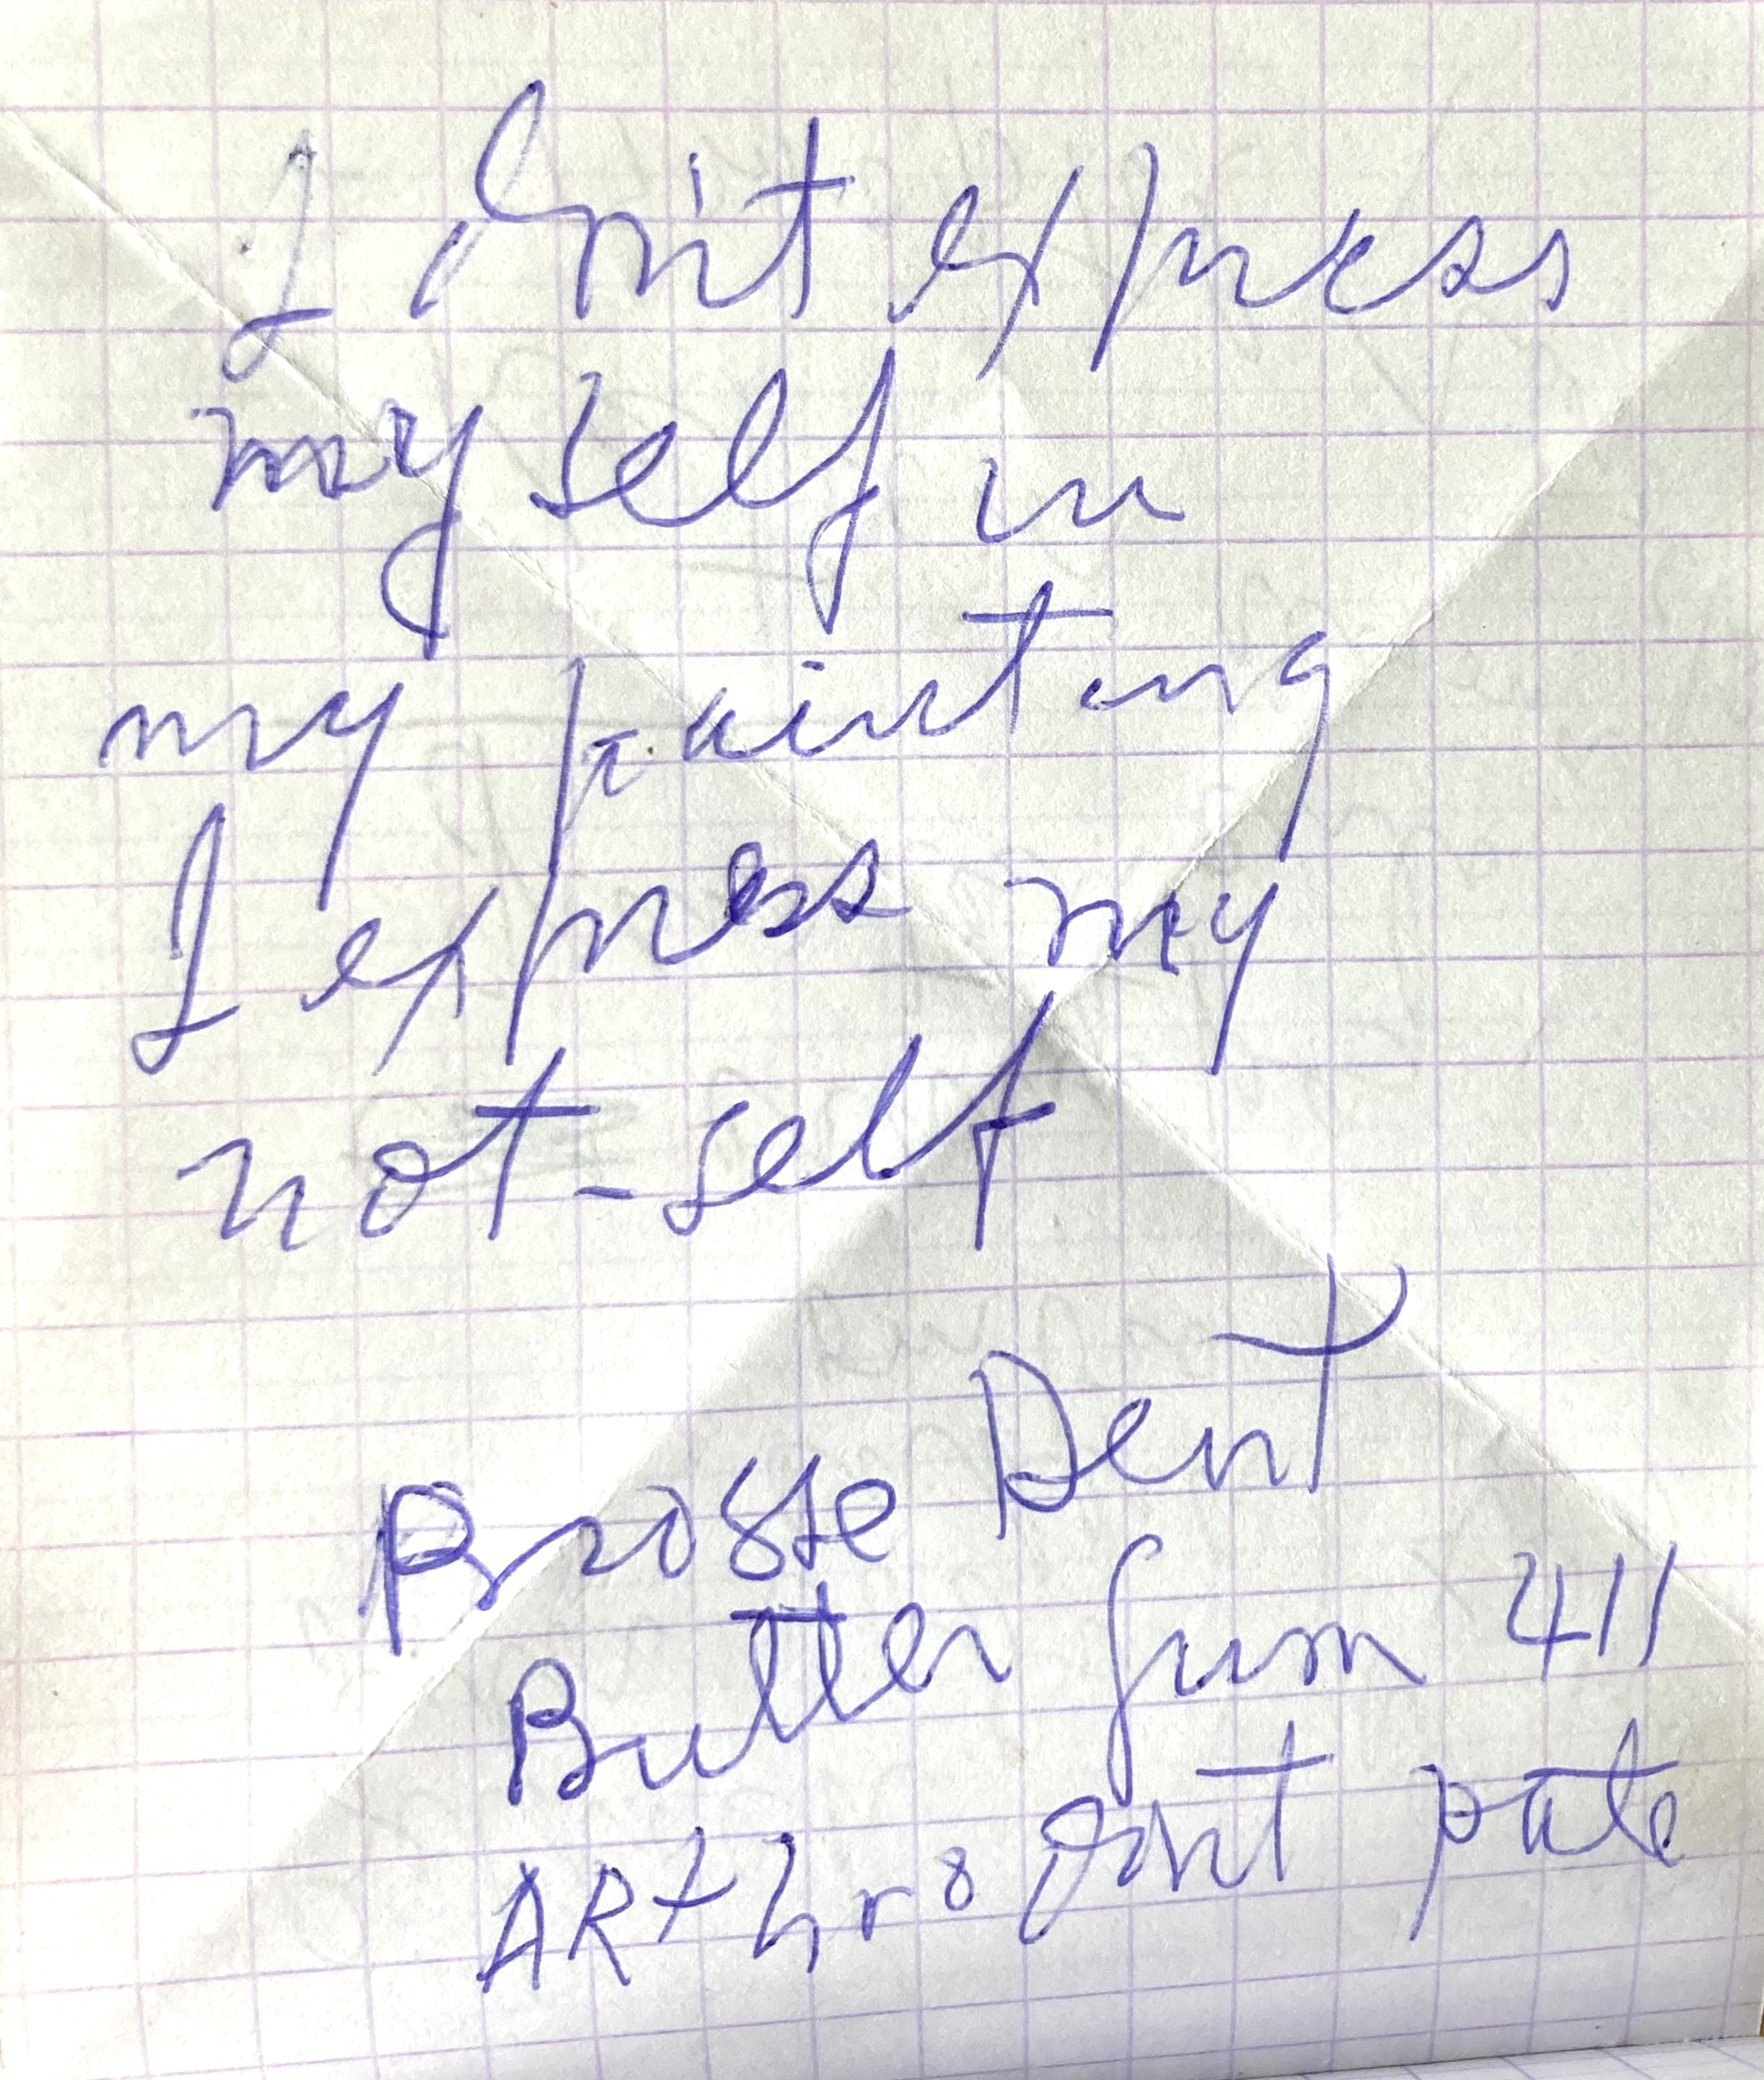 I don't express
my self in
my painting
I express my
not-self
Brosse Dent
Butler Gum 411
ARthrodont pate